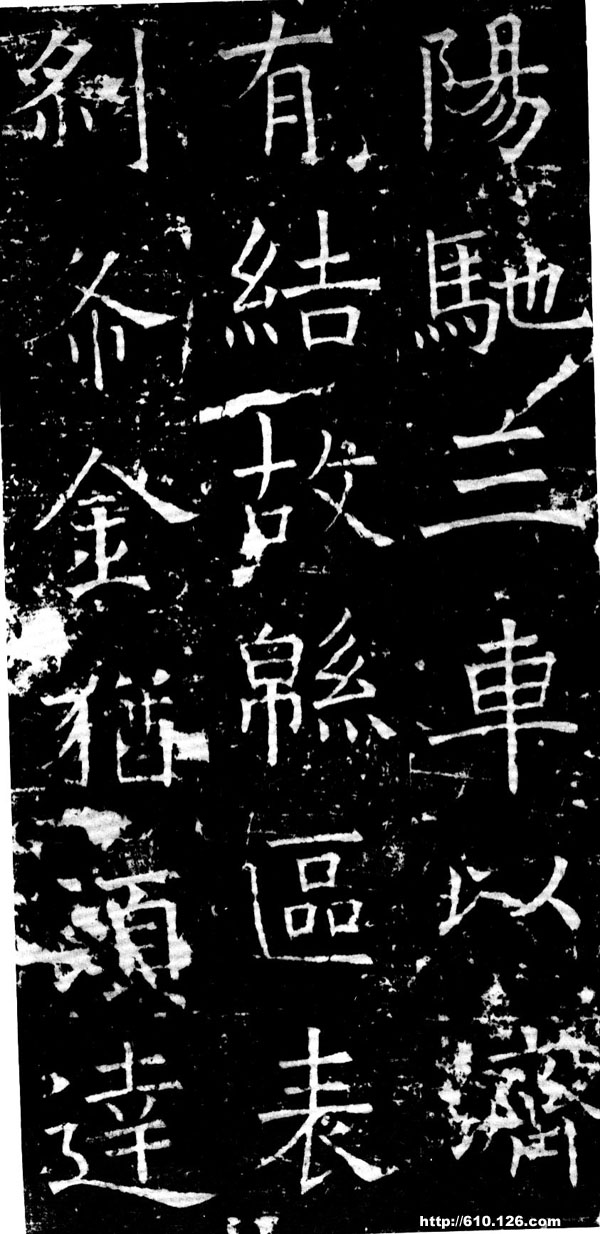 陽馳三車以濟
有結故緜區表
刹布金猶須達
http://610.126.com